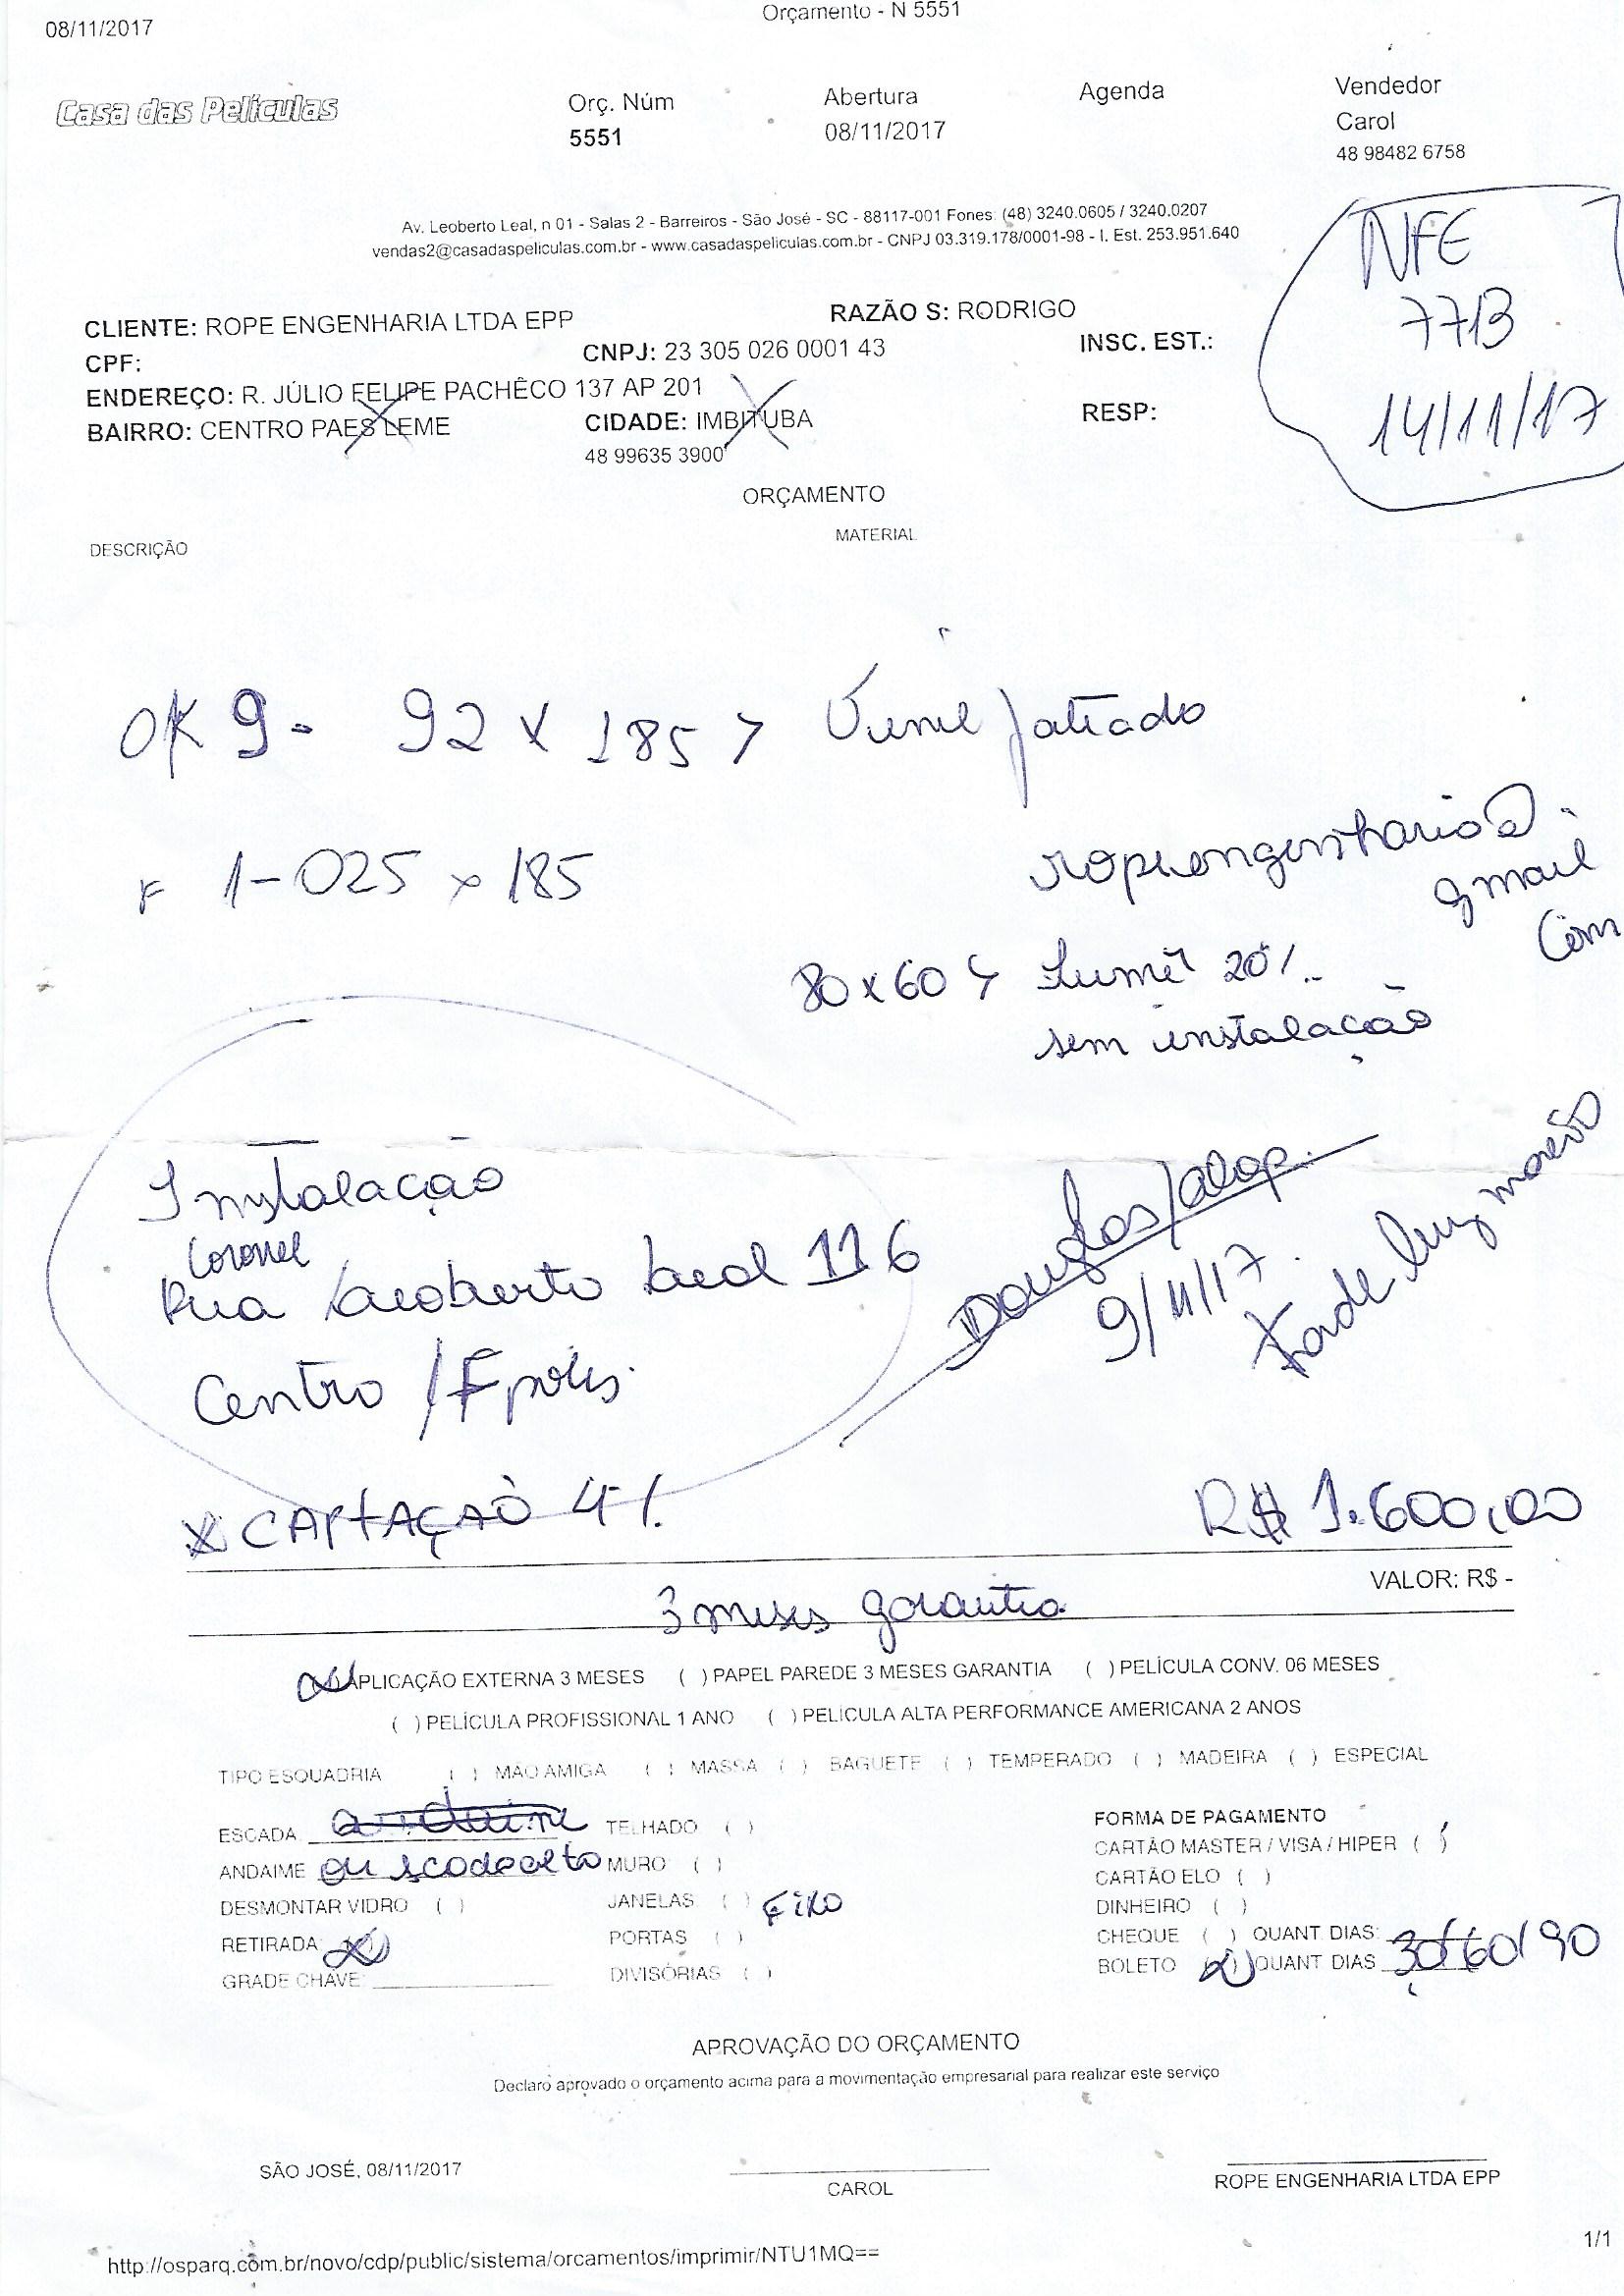 08/11/2017
Orçamento - N 5551
Casa das Películas
Orç. Núm
5551
Abertura
08/11/2017
Agenda
Vendedor
Carol
48 98482 6758
Av. Leoberto Leal, n 01 - Salas 2 - Barreiros - São José - SC - 88117-001 Fones: (48) 3240.0605 / 3240.0207
vendas2@casadaspeliculas.com.br - www.casadaspeliculas.com.br - CNPJ 03.319.178/0001-98 - I. Est. 253.951.640
NFE
7713
14/11/17
CLIENTE: ROPE ENGENHARIA LTDA EPP RAZÃO S: RODRIGO
CPF: CNPJ: 23 305 026 0001 43 INSC. EST.:
ENDEREÇO: R. JÚLIO FELIPE PACHÊCO 137 AP 201
BAIRRO: CENTRO PAES LEME CIDADE: IMBITUBA RESP:
48 99635 3900
ORÇAMENTO
DESCRIÇÃO MATERIAL
OK 9- 92 x 185 > Vinil jatiado
1-025 x 185
ropeengenharia@
gmail
com
80x60 Lumê 20%
sem instalação
Instalação
Coronel
Rua Leoberto Leal 116
Centro / Fpolis.
Douglas/
9/11/17.
X CAPTAÇAÕ 4%
R$ 1.600,00
VALOR: R$ -
3 meses garantia
APLICAÇÃO EXTERNA 3 MESES ( ) PAPEL PAREDE 3 MESES GARANTIA ( ) PELÍCULA CONV. 06 MESES
( ) PELÍCULA PROFISSIONAL 1 ANO ( ) PELÍCULA ALTA PERFORMANCE AMERICANA 2 ANOS
TIPO ESQUADRIA ( ) MÃO AMIGA ( ) MASSA ( ) BAGUETE ( ) TEMPERADO ( ) MADEIRA ( ) ESPECIAL
ESCADA andaime TELHADO ( )
ANDAIME ou escadaalta MURO ( )
DESMONTAR VIDRO ( ) JANELAS ( ) Fixo
RETIRADA (X) PORTAS ( )
GRADE CHAVE DIVISÓRIAS ( )
FORMA DE PAGAMENTO
CARTÃO MASTER / VISA / HIPER ( )
CARTÃO ELO ( )
DINHEIRO ( )
CHEQUE ( ) QUANT DIAS:
BOLETO (X) QUANT DIAS 30/60/90
APROVAÇÃO DO ORÇAMENTO
Declaro aprovado o orçamento acima para a movimentação empresarial para realizar este serviço
SÃO JOSÉ, 08/11/2017
CAROL
ROPE ENGENHARIA LTDA EPP
http://osparq.com.br/novo/cdp/public/sistema/orcamentos/imprimir/NTU1MQ==
1/1